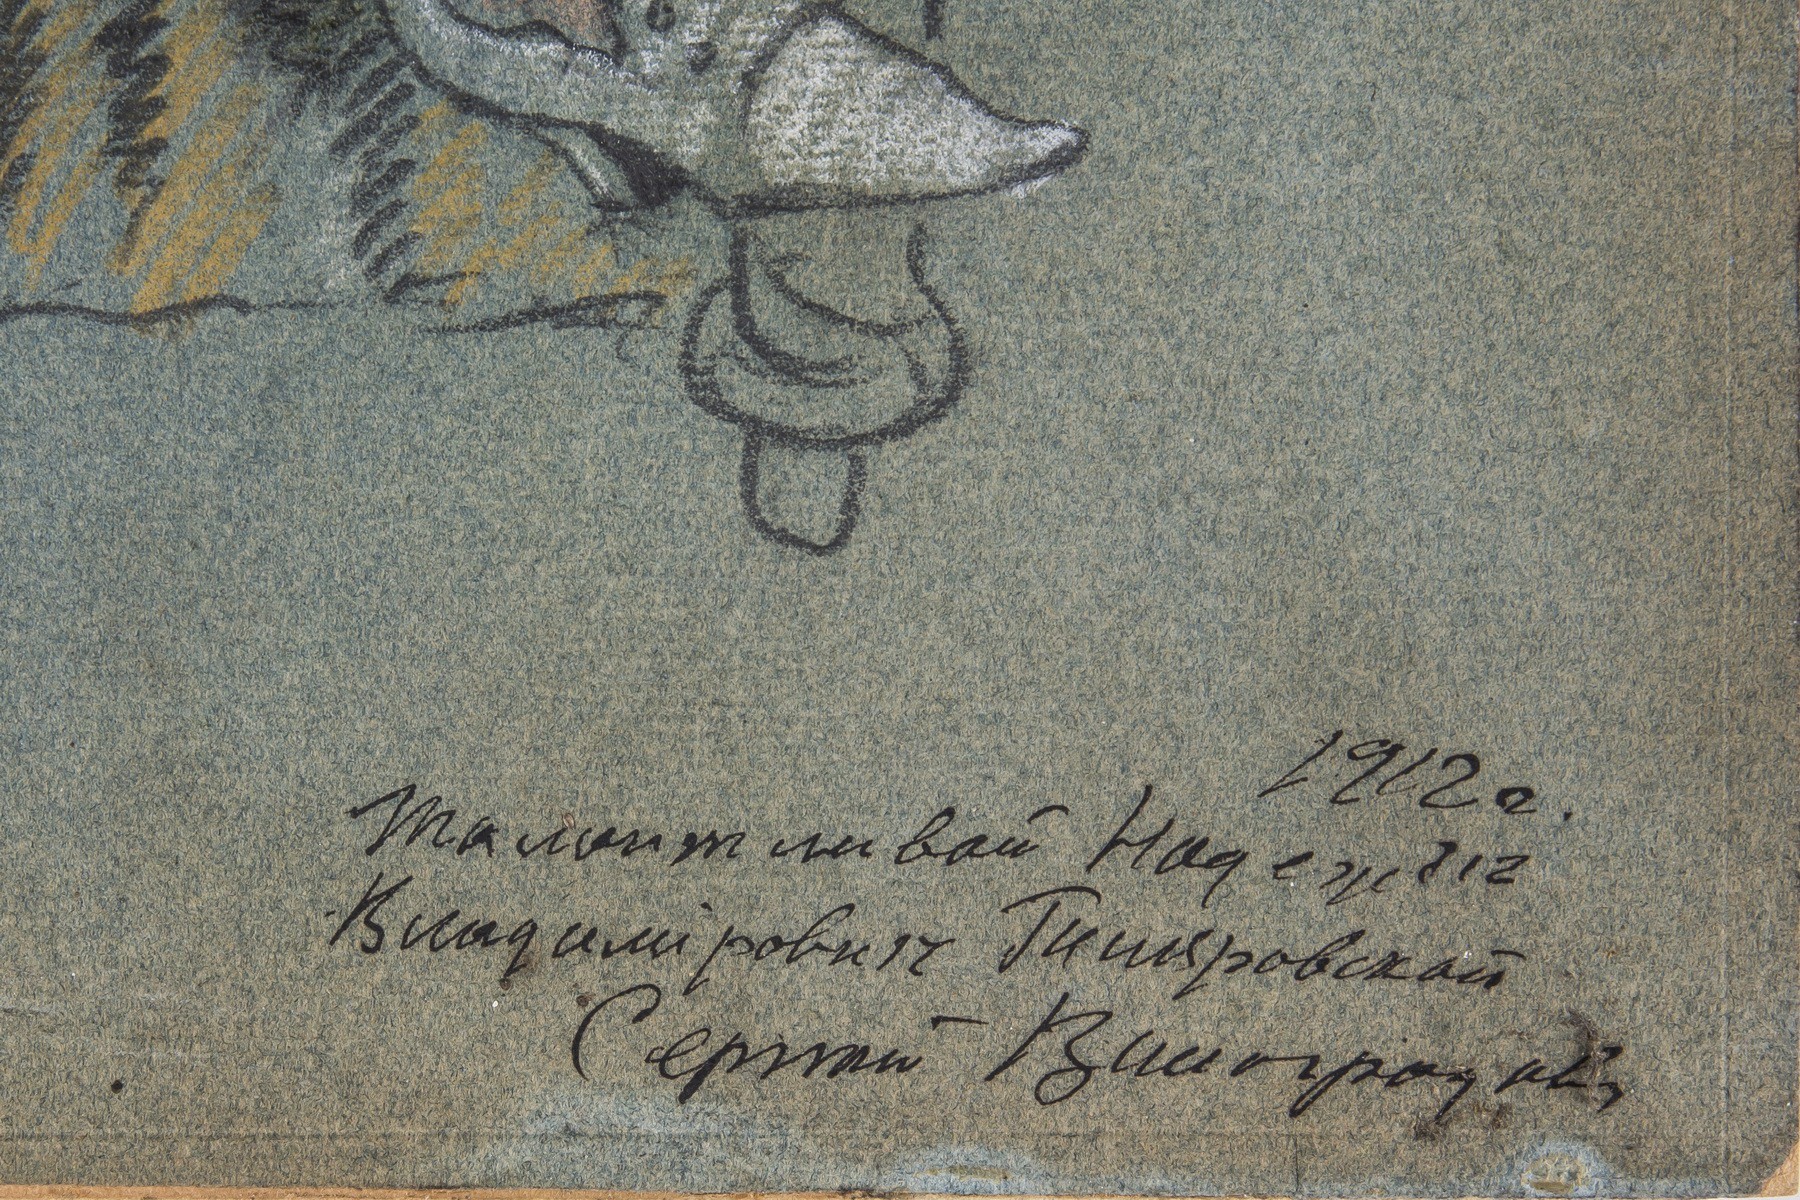 1912 г.
Талантливой Надежде
Владиміровне Гиляровской
Сергей Виноградов